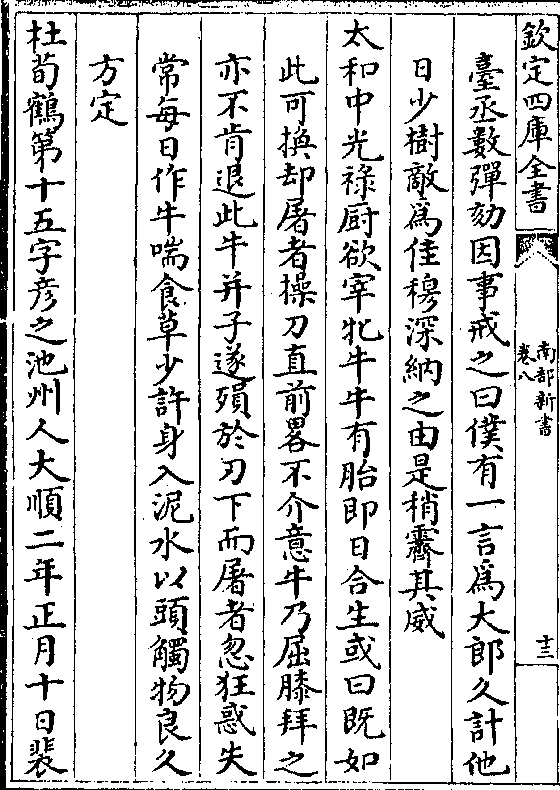 欽定四庫全書
南部新書
卷八
十三
臺丞數彈劾因事戒之曰僕有一言為大郎久計他
日少樹敵為佳穆深納之由是稍霽其威
太和中光祿厨欲宰牝牛牛有胎即日合生或曰既如
此可換却屠者操刀直前畧不介意牛乃屈膝拜之
亦不肯退此牛并子遂殞於刃下而屠者忽狂惑失
常每日作牛喘食草少許身入泥水以頭觸物良久
方定
杜荀鶴第十五字彦之池州人大順二年正月十日裴